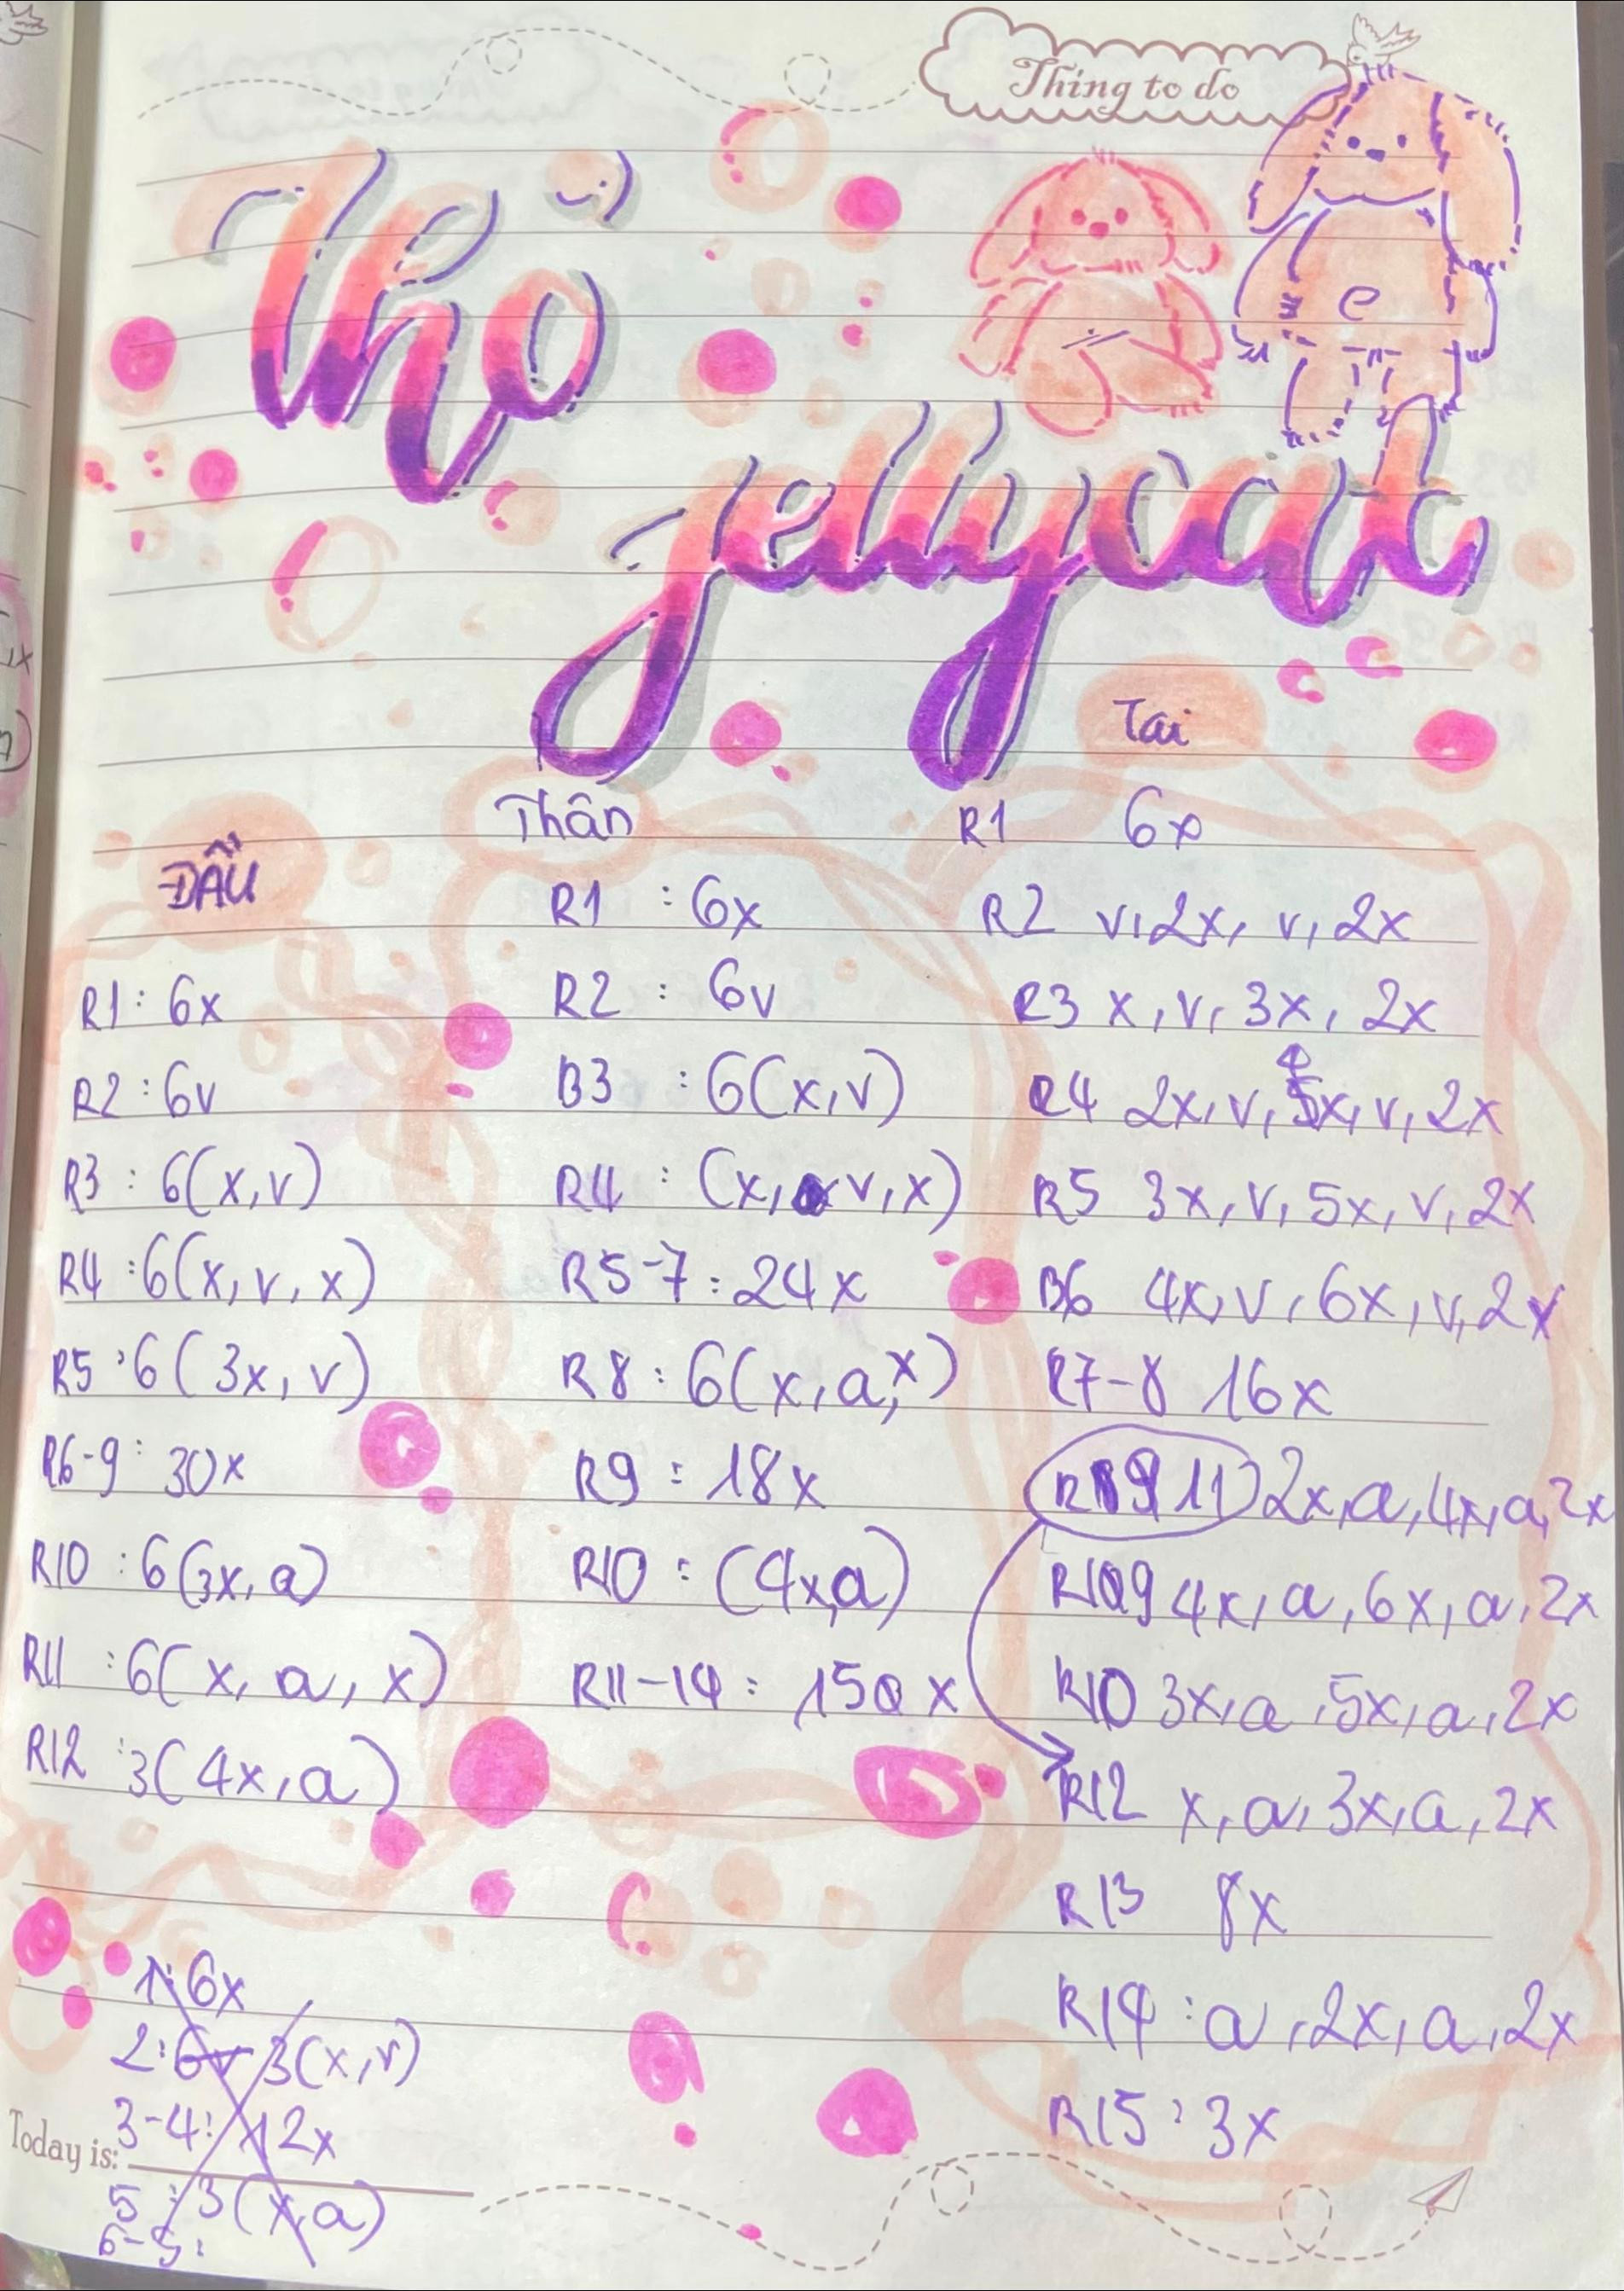 Thing to do
Thỏ
jellycat
e
ĐẦU
R1 : 6x
R2 : 6v
R3 : 6(x,v)
R4 : 6(x, v, x)
R5 : 6(3x, v)
R6-9 : 30x
R10 : 6(3x, a)
R11 : 6(x, a, x)
R12 : 3(4x, a)
1: 6x
2: 6v 3(x,v)
3-4: 12x
5 : 3(x,a)
6-9:
Today is:
Thân
R1 : 6x
R2 : 6v
R3 : 6(x,v)
R4 : (x, v, x)
R5-7 : 24x
R8 : 6(x, a, x)
R9 : 18x
R10 : (4x,a)
R11-14 : 15 x
Tai
R1 6x
R2 v, 2x, v, 2x
R3 x, v, 3x, 2x
4
R4 2x, v, 5x, v, 2x
R5 3x, v, 5x, v, 2x
R6 4x, v, 6x, v, 2x
R7-8 16x
11 2x, a, 4x, a, 2x
R9 4x, a, 6x, a, 2x
R10 3x, a, 5x, a, 2x
R12 x, a, 3x, a, 2x
R13 8x
R14 : a, 2x, a, 2x
R15 : 3x